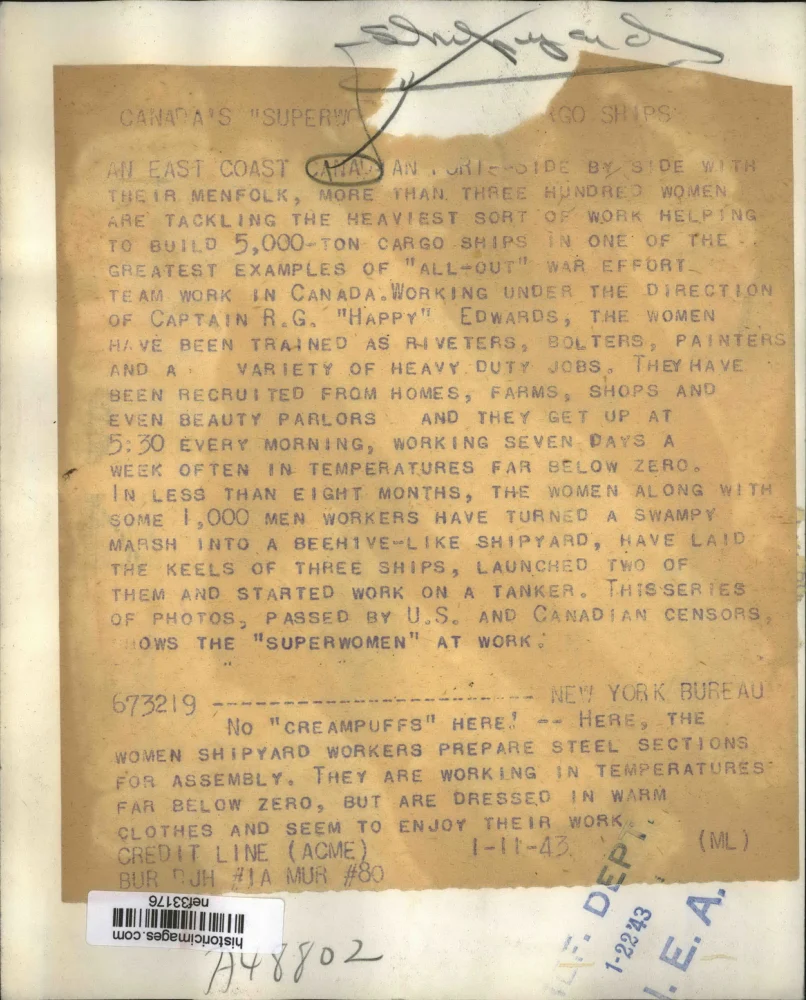 Shipyard
CANADA'S "SUPERWO GO SHIPS
AN EAST COAST CANADIAN PORT--SIDE BY SIDE WITH
THEIR MENFOLK, MORE THAN THREE HUNDRED WOMEN
ARE TACKLING THE HEAVIEST SORT OF WORK HELPING
TO BUILD 5,000-TON CARGO SHIPS IN ONE OF THE
GREATEST EXAMPLES OF "ALL-OUT" WAR EFFORT
TEAM WORK IN CANADA. WORKING UNDER THE DIRECTION
OF CAPTAIN R.G. "HAPPY" EDWARDS, THE WOMEN
HAVE BEEN TRAINED AS RIVETERS, BOLTERS, PAINTERS
AND A VARIETY OF HEAVY DUTY JOBS. THEY HAVE
BEEN RECRUITED FROM HOMES, FARMS, SHOPS AND
EVEN BEAUTY PARLORS AND THEY GET UP AT
5:30 EVERY MORNING, WORKING SEVEN DAYS A
WEEK OFTEN IN TEMPERATURES FAR BELOW ZERO.
IN LESS THAN EIGHT MONTHS, THE WOMEN ALONG WITH
SOME 1,000 MEN WORKERS HAVE TURNED A SWAMPY
MARSH INTO A BEEHIVE-LIKE SHIPYARD, HAVE LAID
THE KEELS OF THREE SHIPS, LAUNCHED TWO OF
THEM AND STARTED WORK ON A TANKER. THIS SERIES
OF PHOTOS, PASSED BY U.S. AND CANADIAN CENSORS,
HOWS THE "SUPERWOMEN" AT WORK.
673219 ---------------------------- NEW YORK BUREAU
NO "CREAMPUFFS" HERE! -- HERE, THE
WOMEN SHIPYARD WORKERS PREPARE STEEL SECTIONS
FOR ASSEMBLY. THEY ARE WORKING IN TEMPERATURES
FAR BELOW ZERO, BUT ARE DRESSED IN WARM
CLOTHES AND SEEM TO ENJOY THEIR WORK.
CREDIT LINE (ACME) 1-11-43 (ML)
BUR JH #1A MUR #80
historicimages.com
nef33176
A48802
DEPT.
1-22'43
E. A.